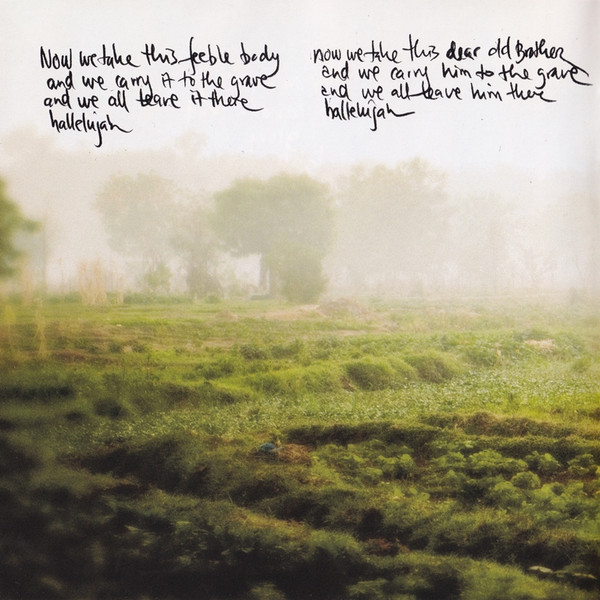 Now we take this feeble body
and we carry it to the grave
and we all leave it there
hallelujah
now we take this dear old Brother
and we carry him to the grave
and we all leave him there
hallelujah